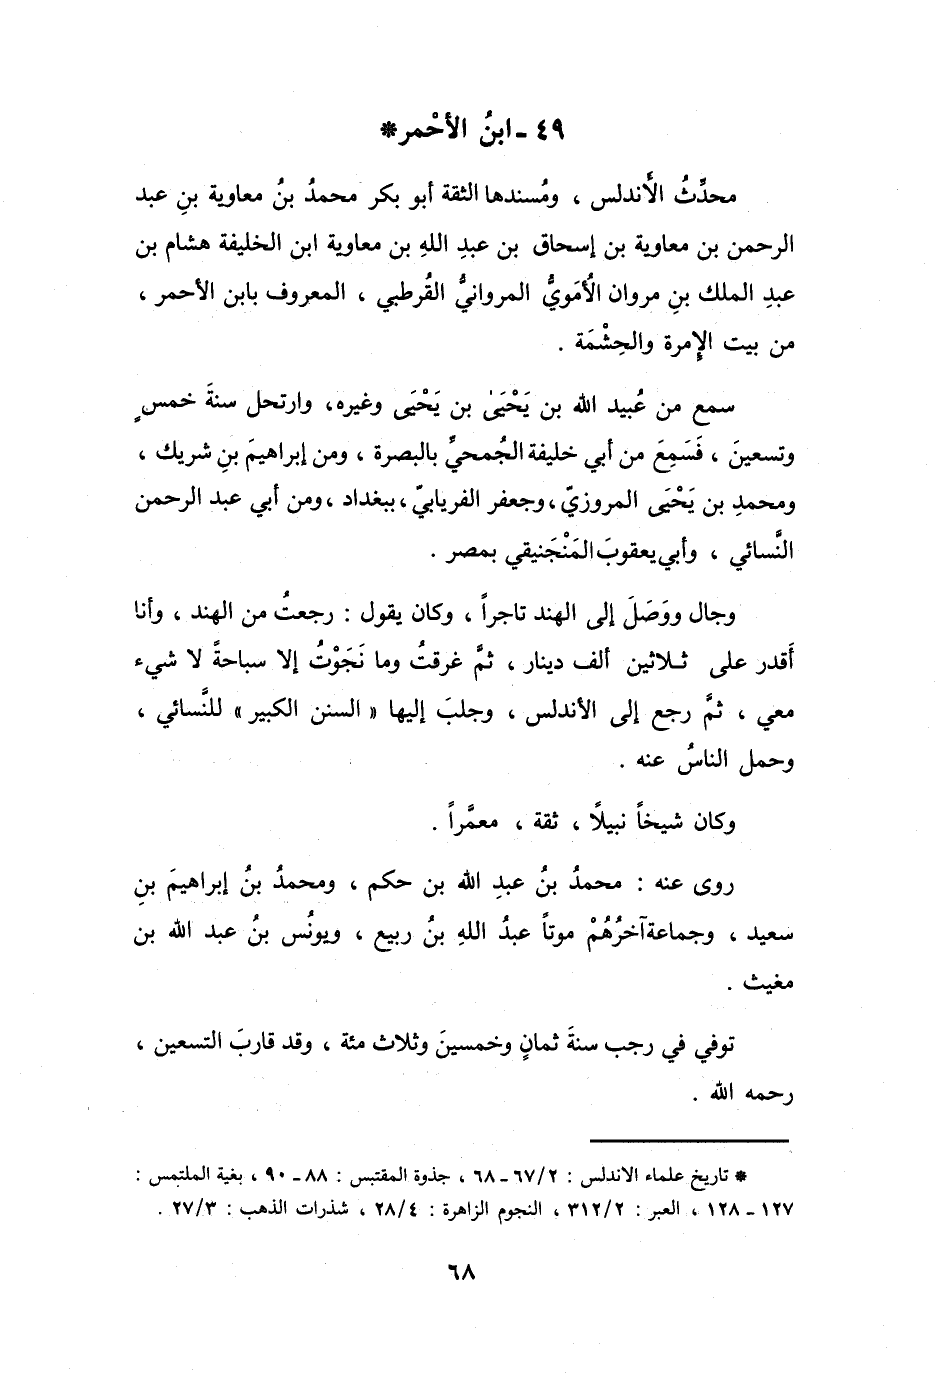 ٤٩ - ابنُ الأحْمر*
محدِّثُ الأَندلس ، ومُسندها الثقة أبو بكر محمدُ بنُ معاوية بنِ عبد
الرحمن بن معاوية بن إسحاق بن عبدِ اللهِ بن معاوية ابن الخليفة هشام بن
عبدِ الملك بنِ مروان الأُمَويُّ المروانيُّ القُرطبي ، المعروف بابن الأحمر ،
من بيت الإِمرة والحِشْمَة .
سمع من عُبيد الله بن يَحْيَىٰ بن يَحْيَى وغيره، وارتحل سنةَ خمسٍ
وتسعينَ ، فَسَمِعَ من أبي خليفة الجُمحيِّ بالبصرة ، ومن إبراهيمَ بنِ شريك ،
ومحمدِ بن يَحْيَى المروزيّ، وجعفر الفريابيّ، ببغداد ، ومن أبي عبد الرحمن
النَّسائي ، وأبي يعقوبَ المَنْجَنيقي بمصر .
وجال ووَصَلَ إلى الهند تاجراً ، وكان يقول : رجعتُ من الهند ، وأنا
أَقدر على ثلاثين ألف دينار ، ثمَّ غرقتُ وما نَجَوْتُ إلا سباحةً لا شيء
معي ، ثمَّ رجع إلى الأندلس ، وجلبَ إليها « السنن الكبير » للنَّسائي ،
وحمل الناسُ عنه .
وكان شيخاً نبيلًا ، ثقة ، معمَّراً .
روى عنه : محمدُ بنُ عبدِ الله بن حكم ، ومحمدُ بنُ إبراهيمَ بنِ
سعيد ، وجماعة آخرُهُمْ موتاً عبدُ اللهِ بنُ ربيع ، ويونُس بنُ عبد الله بن
مغيث .
توفي في رجب سنةَ ثمانٍ وخمسينَ وثلاث مئة ، وقد قاربَ التسعين ،
رحمه الله .
* تاريخ علماء الاندلس : ٦٧/٢ - ٦٨ ، جذوة المقتبس : ٨٨ - ٩٠ ، بغية الملتمس :
١٢٧ - ١٢٨ ، العبر : ٣١٢/٢ ، النجوم الزاهرة : ٢٨/٤ ، شذرات الذهب : ٢٧/٣ .
٦٨